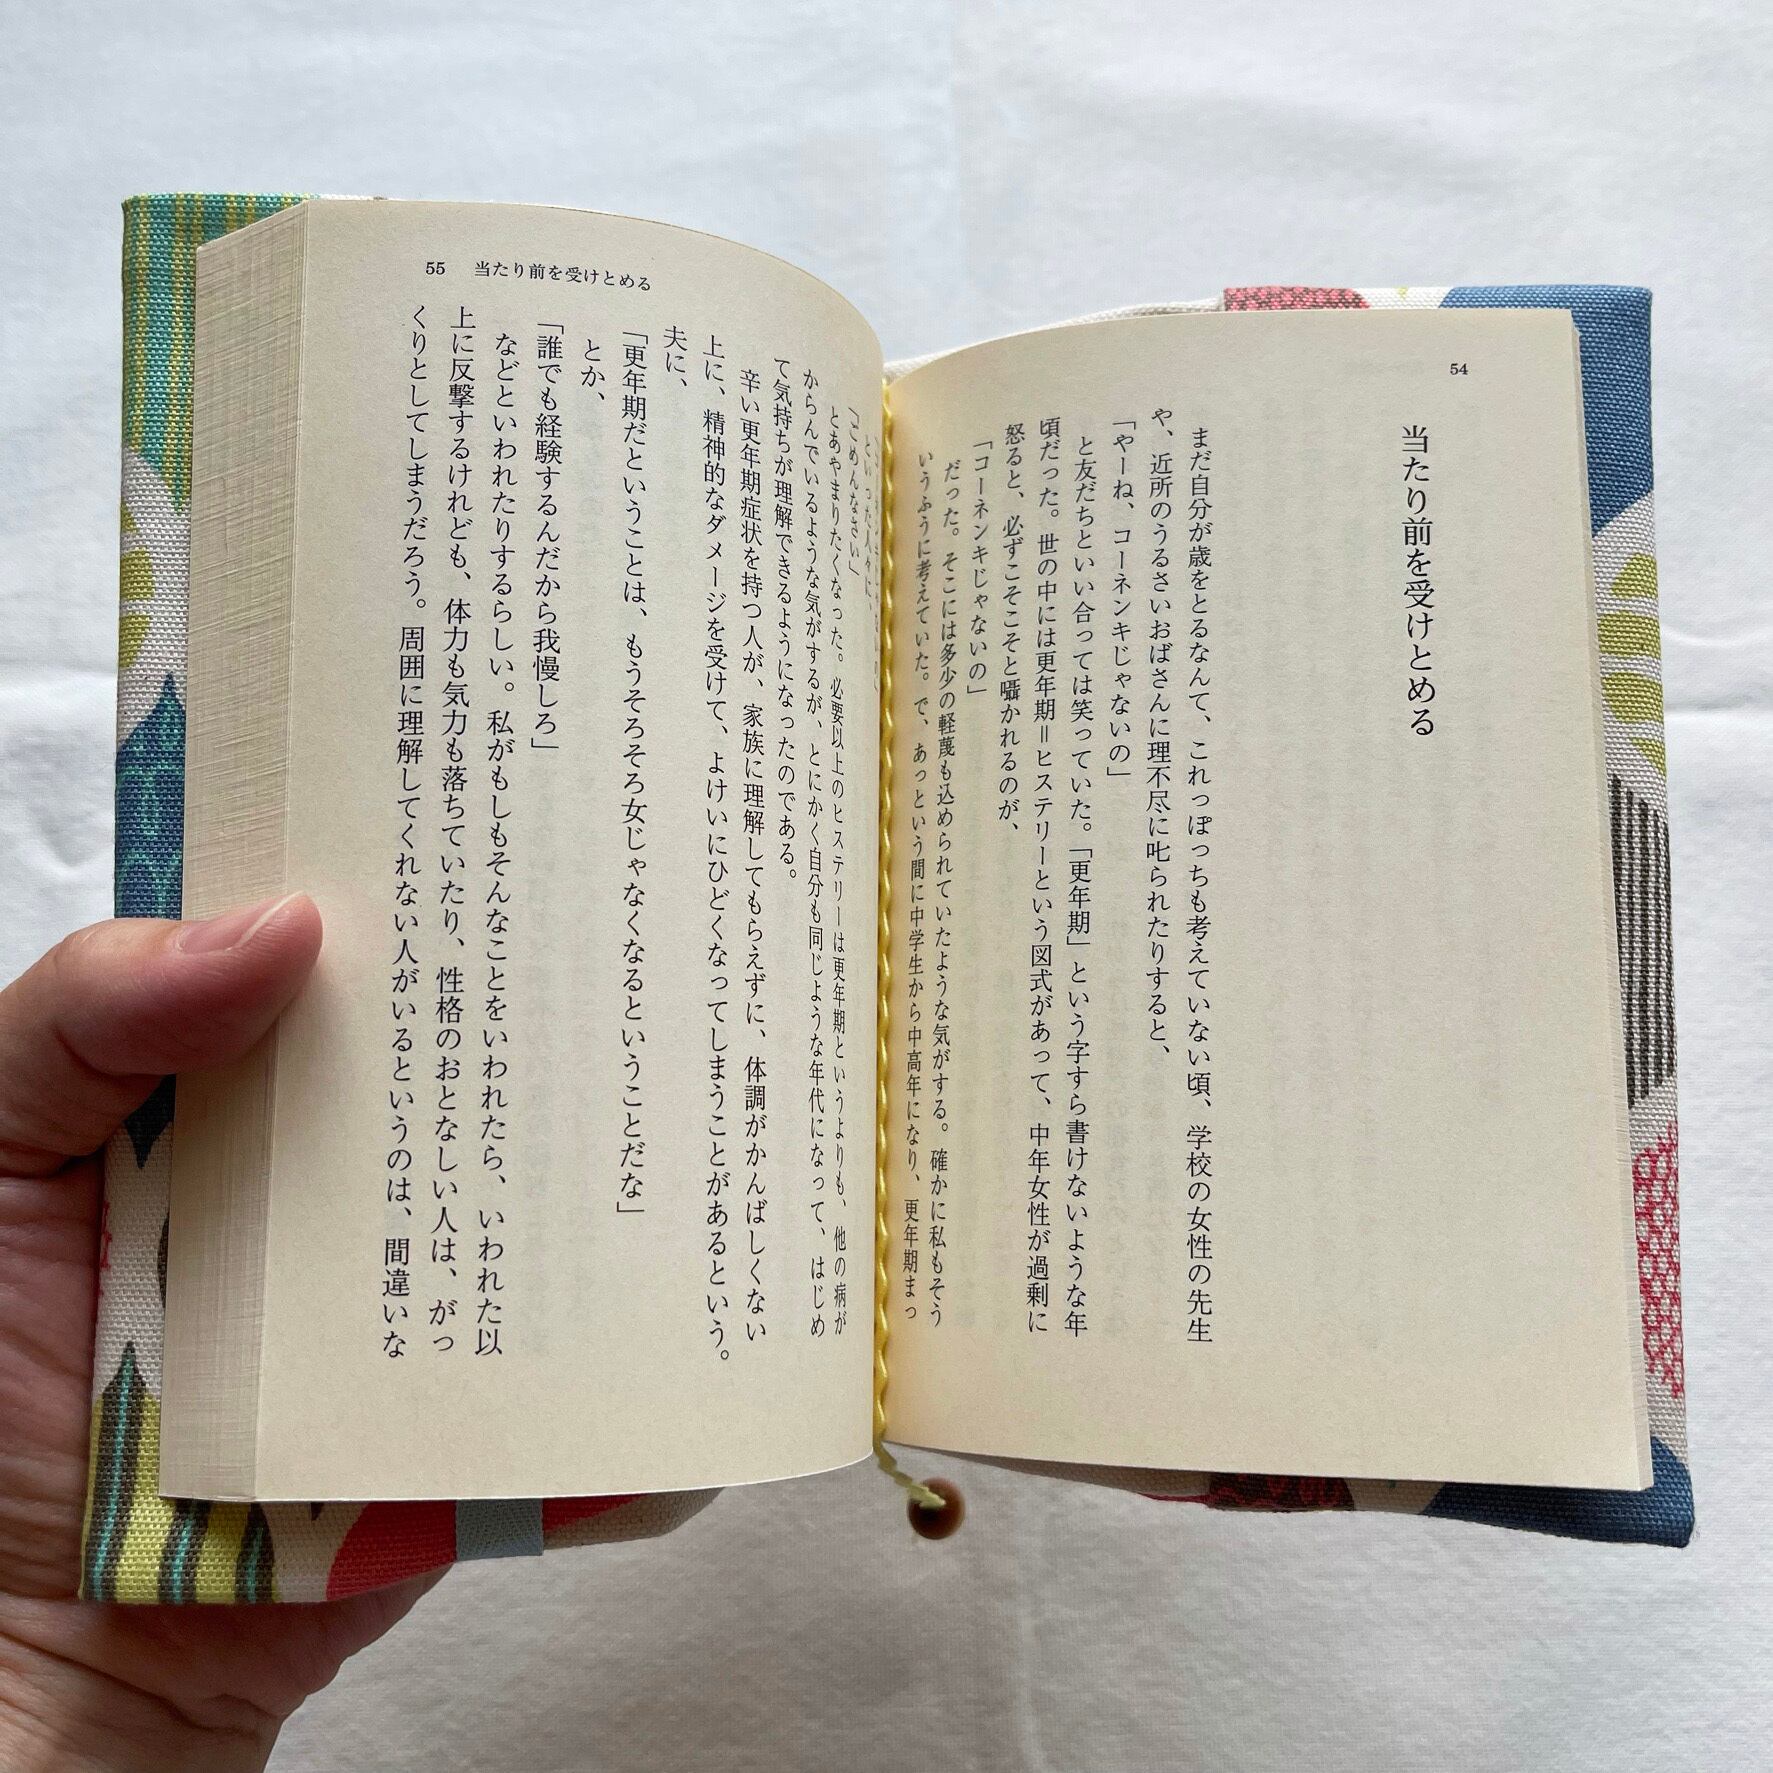 54
当たり前を受けとめる
まだ自分が歳をとるなんて、これっぽっちも考えていない頃、学校の女性の先生
や、近所のうるさいおばさんに理不尽に叱られたりすると、
「やーね、コーネンキじゃないの」
と友だちといい合っては笑っていた。「更年期」という字すら書けないような年
頃だった。世の中には更年期＝ヒステリーという図式があって、中年女性が過剰に
怒ると、必ずこそこそと囁かれるのが、
「コーネンキじゃないの」
だった。そこには多少の軽蔑も込められていたような気がする。確かに私もそう
いうふうに考えていた。で、あっという間に中学生から中高年になり、更年期まっ
55 当たり前を受けとめる
といった人々に、
「ごめんなさい」
とあやまりたくなった。必要以上のヒステリーは更年期というよりも、他の病が
からんでいるような気がするが、とにかく自分も同じような年代になって、はじめ
て気持ちが理解できるようになったのである。
辛い更年期症状を持つ人が、家族に理解してもらえずに、体調がかんばしくない
上に、精神的なダメージを受けて、よけいにひどくなってしまうことがあるという。
夫に、
「更年期だということは、もうそろそろ女じゃなくなるということだな」
とか、
「誰でも経験するんだから我慢しろ」
などといわれたりするらしい。私がもしもそんなことをいわれたら、いわれた以
上に反撃するけれども、体力も気力も落ちていたり、性格のおとなしい人は、がっ
くりとしてしまうだろう。周囲に理解してくれない人がいるというのは、間違いな